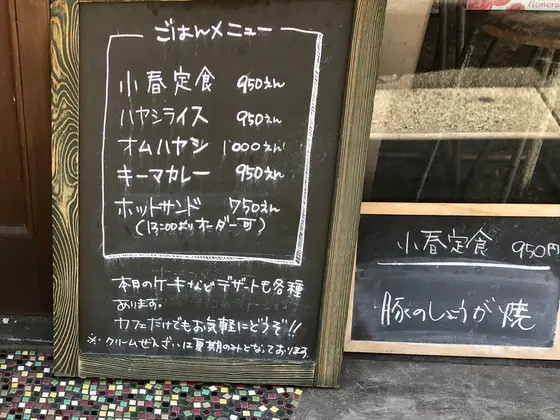 ごはんメニュー
小春定食 950えん
ハヤシライス 950えん
オムハヤシ 1000えん
キーマカレー 950えん
ホットサンド 750えん
(13:00よりオーダー可)
本日のケーキなどデザートも各種
あります。
カフェだけでもお気軽にどうぞ!!
※クリームぜんざいは夏期のみとなっております
小春定食 950円
豚のしょうが焼